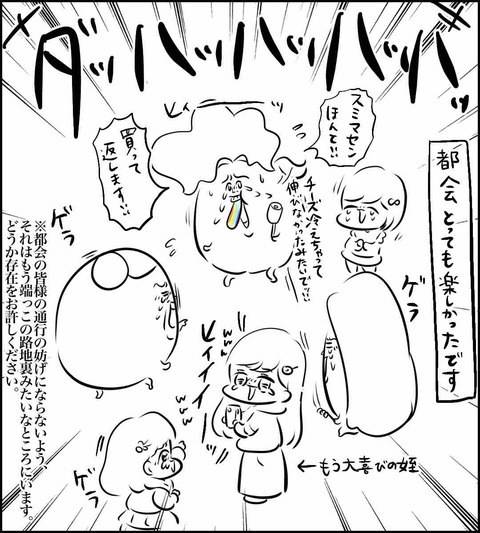 ダッハッハッハッハッ
都会とっても楽しかったです
スミマセン
ほんと!!
チーズ冷えちゃって
伸びなかったみたいでッ!!
買って
返します!!
ゲラ
ゲラ
ゲラ
www
www
ビィィィィ
←もう大喜びの姪
※都会の皆様の通行の妨げにならないよう、
それはもう端っこの路地裏みたいなところにいます。
どうか存在をお許しください。